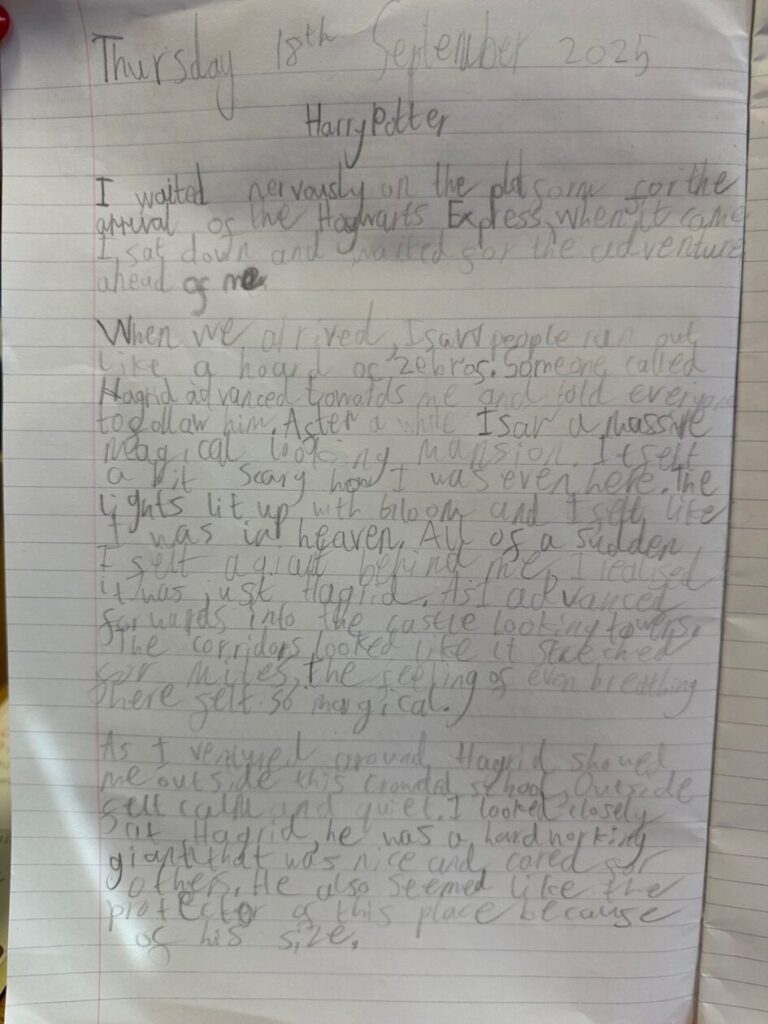 Thursday 18th September 2025
Harry Potter
I waited nervously on the platform for the
arrival of the Hogwarts Express, when it came
I, sat down and waited for the adventure
ahead of me
When we arrived, I saw people run out
like a hoard of zebras. Someone called
Hagrid advanced towards me and told everyone
to follow him. After a while I saw a massive
magical looking mansion. It felt
a bit scary how I was even here. The
lights lit up with bloom and I felt like
I was in heaven. All of a sudden
I felt a giant behind me, I realised
it was just Hagrid. As I advanced
forwards into the castle looking towers,
The corridors looked like it streched
for miles, the feeling of even breathing
here felt so magical.
As I ventured around Hagrid showed
me outside this crowded school, Outside
felt calm and quiet. I looked closely
at Hagrid, he was a hardworking
giant that was nice and cared for
others. He also seemed like the
protector of this place because
of his size.